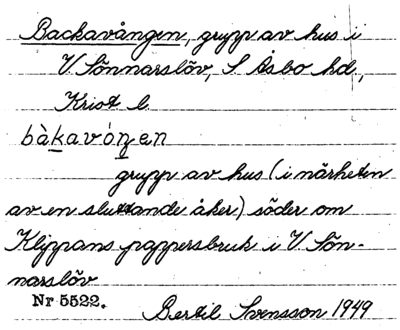 Backavången, grupp av hus i
V Sönnarslöv, S Åsbo hd,
Krist l.
bàkavóŋen
grupp av hus (i närheten
av en sluttande åker) söder om
Klippans pappersbruk i V Sön-
narslöv
Nr 5522. Bertil Svensson 1949